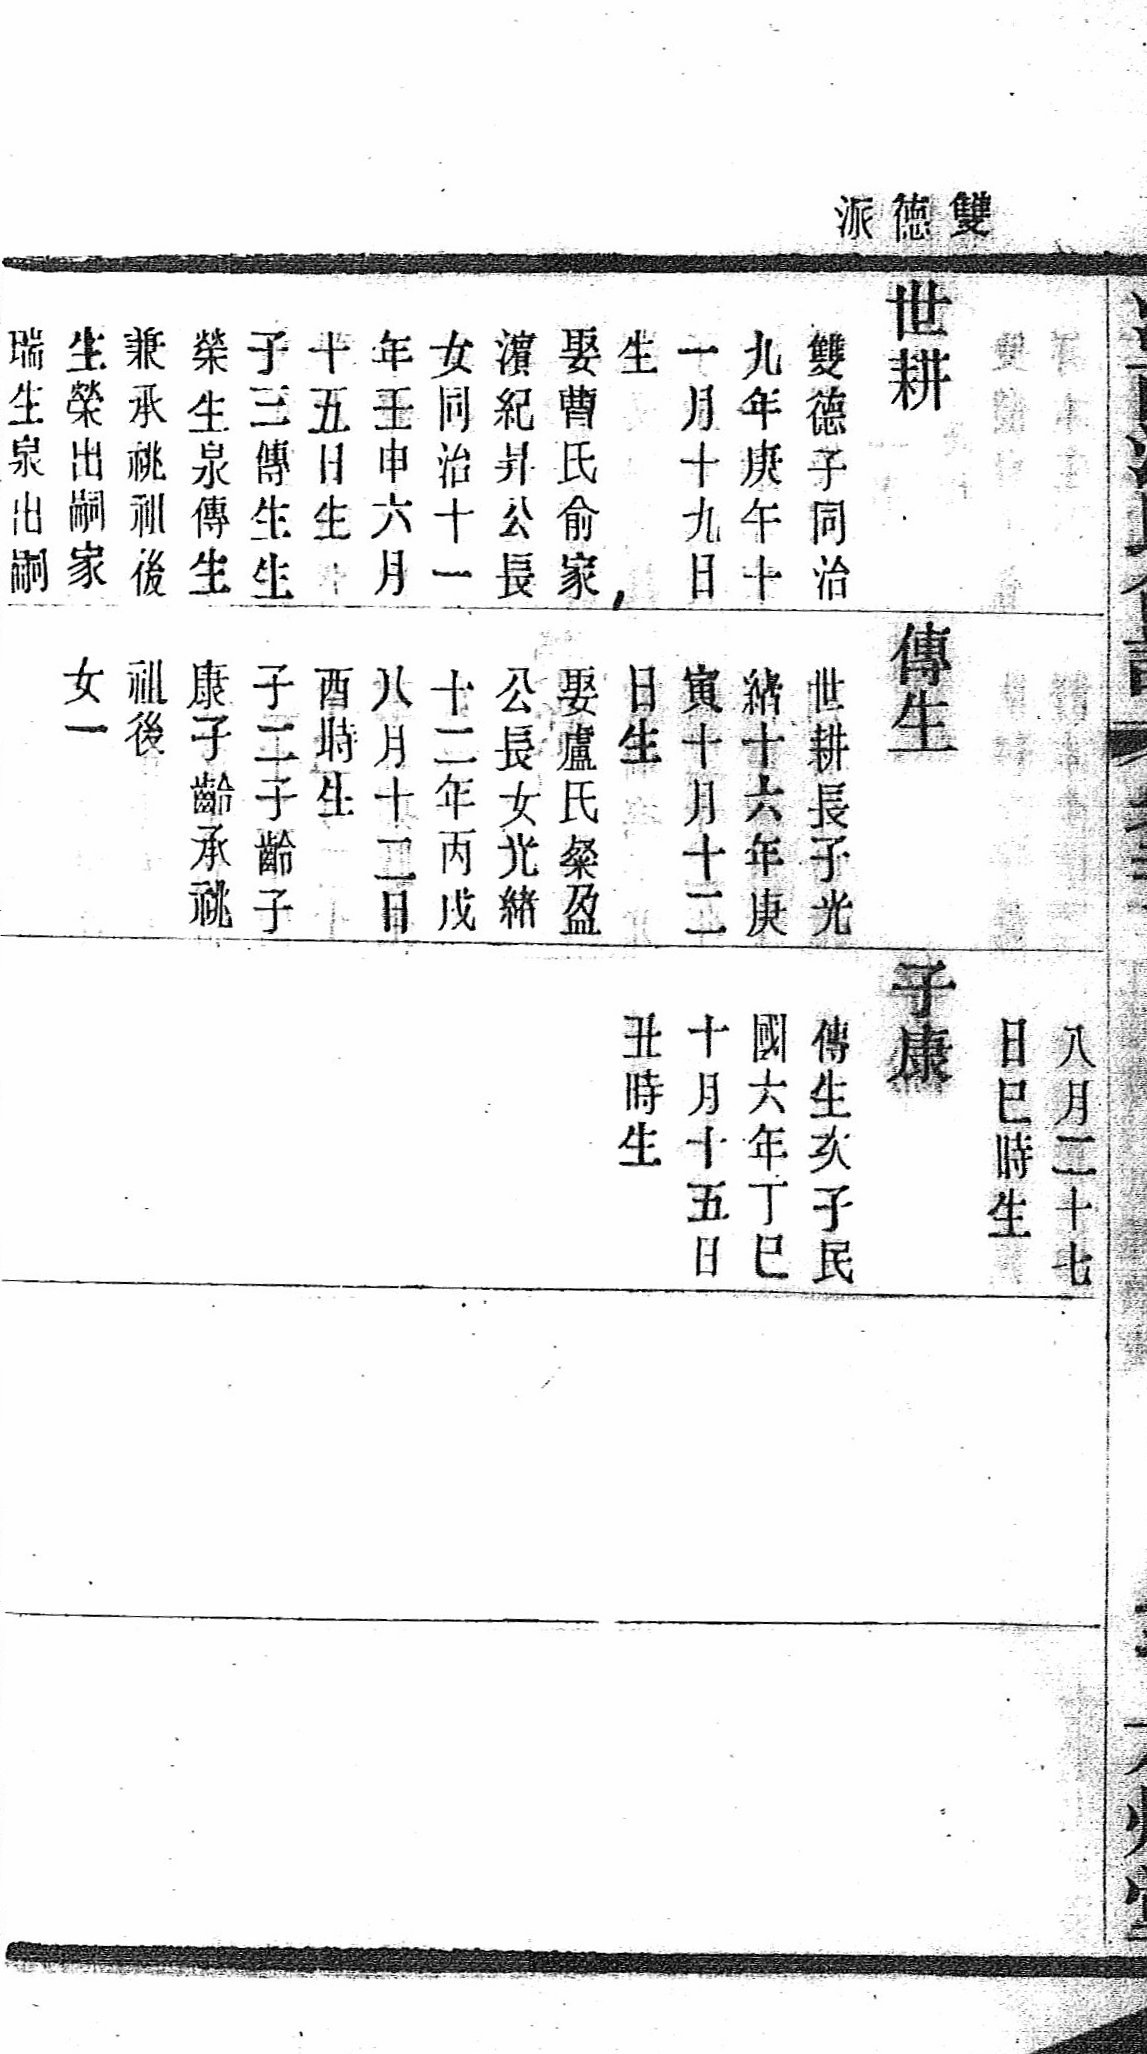 雙德派
世耕
雙德子同治
九年庚午十
一月十九日
生
娶曹氏俞家
濵紀昇公長
女同治十一
年壬申六月
十五日生
子三傳生生
榮生泉傳生
兼承祧祖後
生榮出嗣家
瑞生泉出嗣
傳生
世耕長子光
緒十六年庚
寅十月十二
日生
娶盧氏粲盈
公長女光緒
十二年丙戌
八月十二日
酉時生
子二子齡子
康子齡承祧
祖後
女一
八月二十七
日巳時生
子康
傳生次子民
國六年丁巳
十月十五日
丑時生